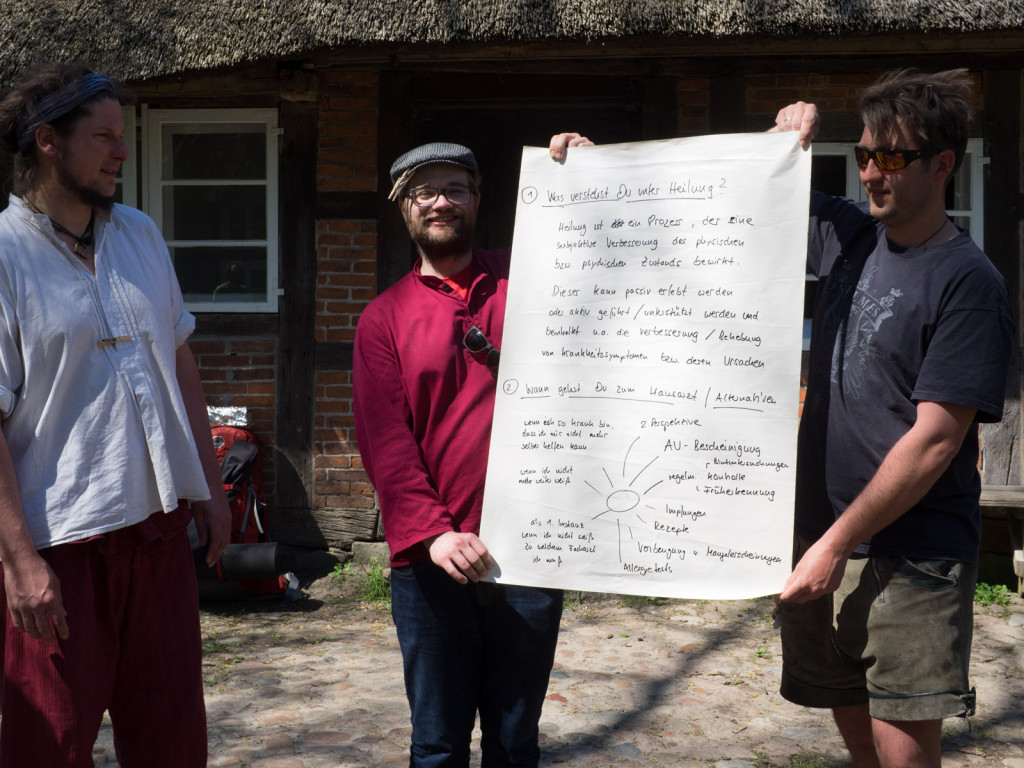 ① Was verstehst Du unter Heilung?
Heilung ist ein Prozess, der eine
subjektive Verbesserung des physischen
bzw. psychischen Zustands bewirkt.
Dieser kann passiv erlebt werden
oder aktiv geführt / unterstützt werden und
beinhaltet u.a. die Verbesserung / Behebung
von Krankheitssymptomen bzw. deren Ursachen
② Wann gehst Du zum Hausarzt / Alternativen
wenn ich so krank bin,
dass ich mir nicht mehr
selber helfen kann
wenn ich nicht
mehr weiter weiß
als 1. Instanz
wenn ich nicht weiß
zu welchem Facharzt
ich muß
2 Perspektive
AU-Bescheinigung
Blutuntersuchungen
regelm. Kontrolle
Früherkennung
Impfungen
Rezepte
Vorbeugung v. Mangelerscheinungen
Allergietests